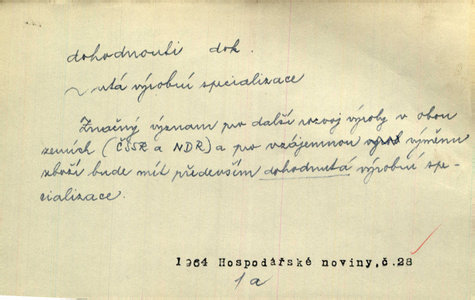 dohodnouti dok.
~ utá výrobní specializace
Značný význam pro další rozvoj výroby v obou
zemích (ČSSR a NDR) a pro vzájemnou výměnu
zboží bude mít především dohodnutá výrobní spe-
cializace.
1964 Hospodářské noviny, č. 28
1a